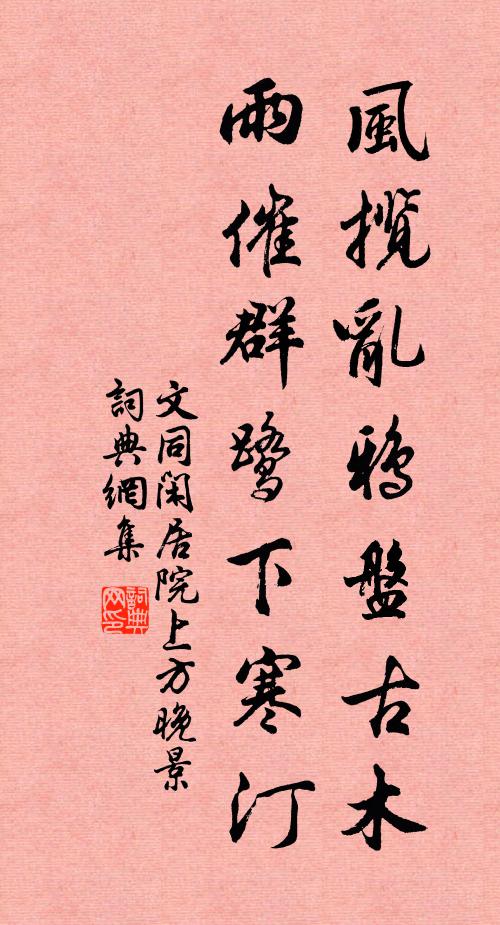 風攬亂鴉盤古木
雨催群鷺下寒汀
文同閑居院上方晚景
詞典網集
詞典網印